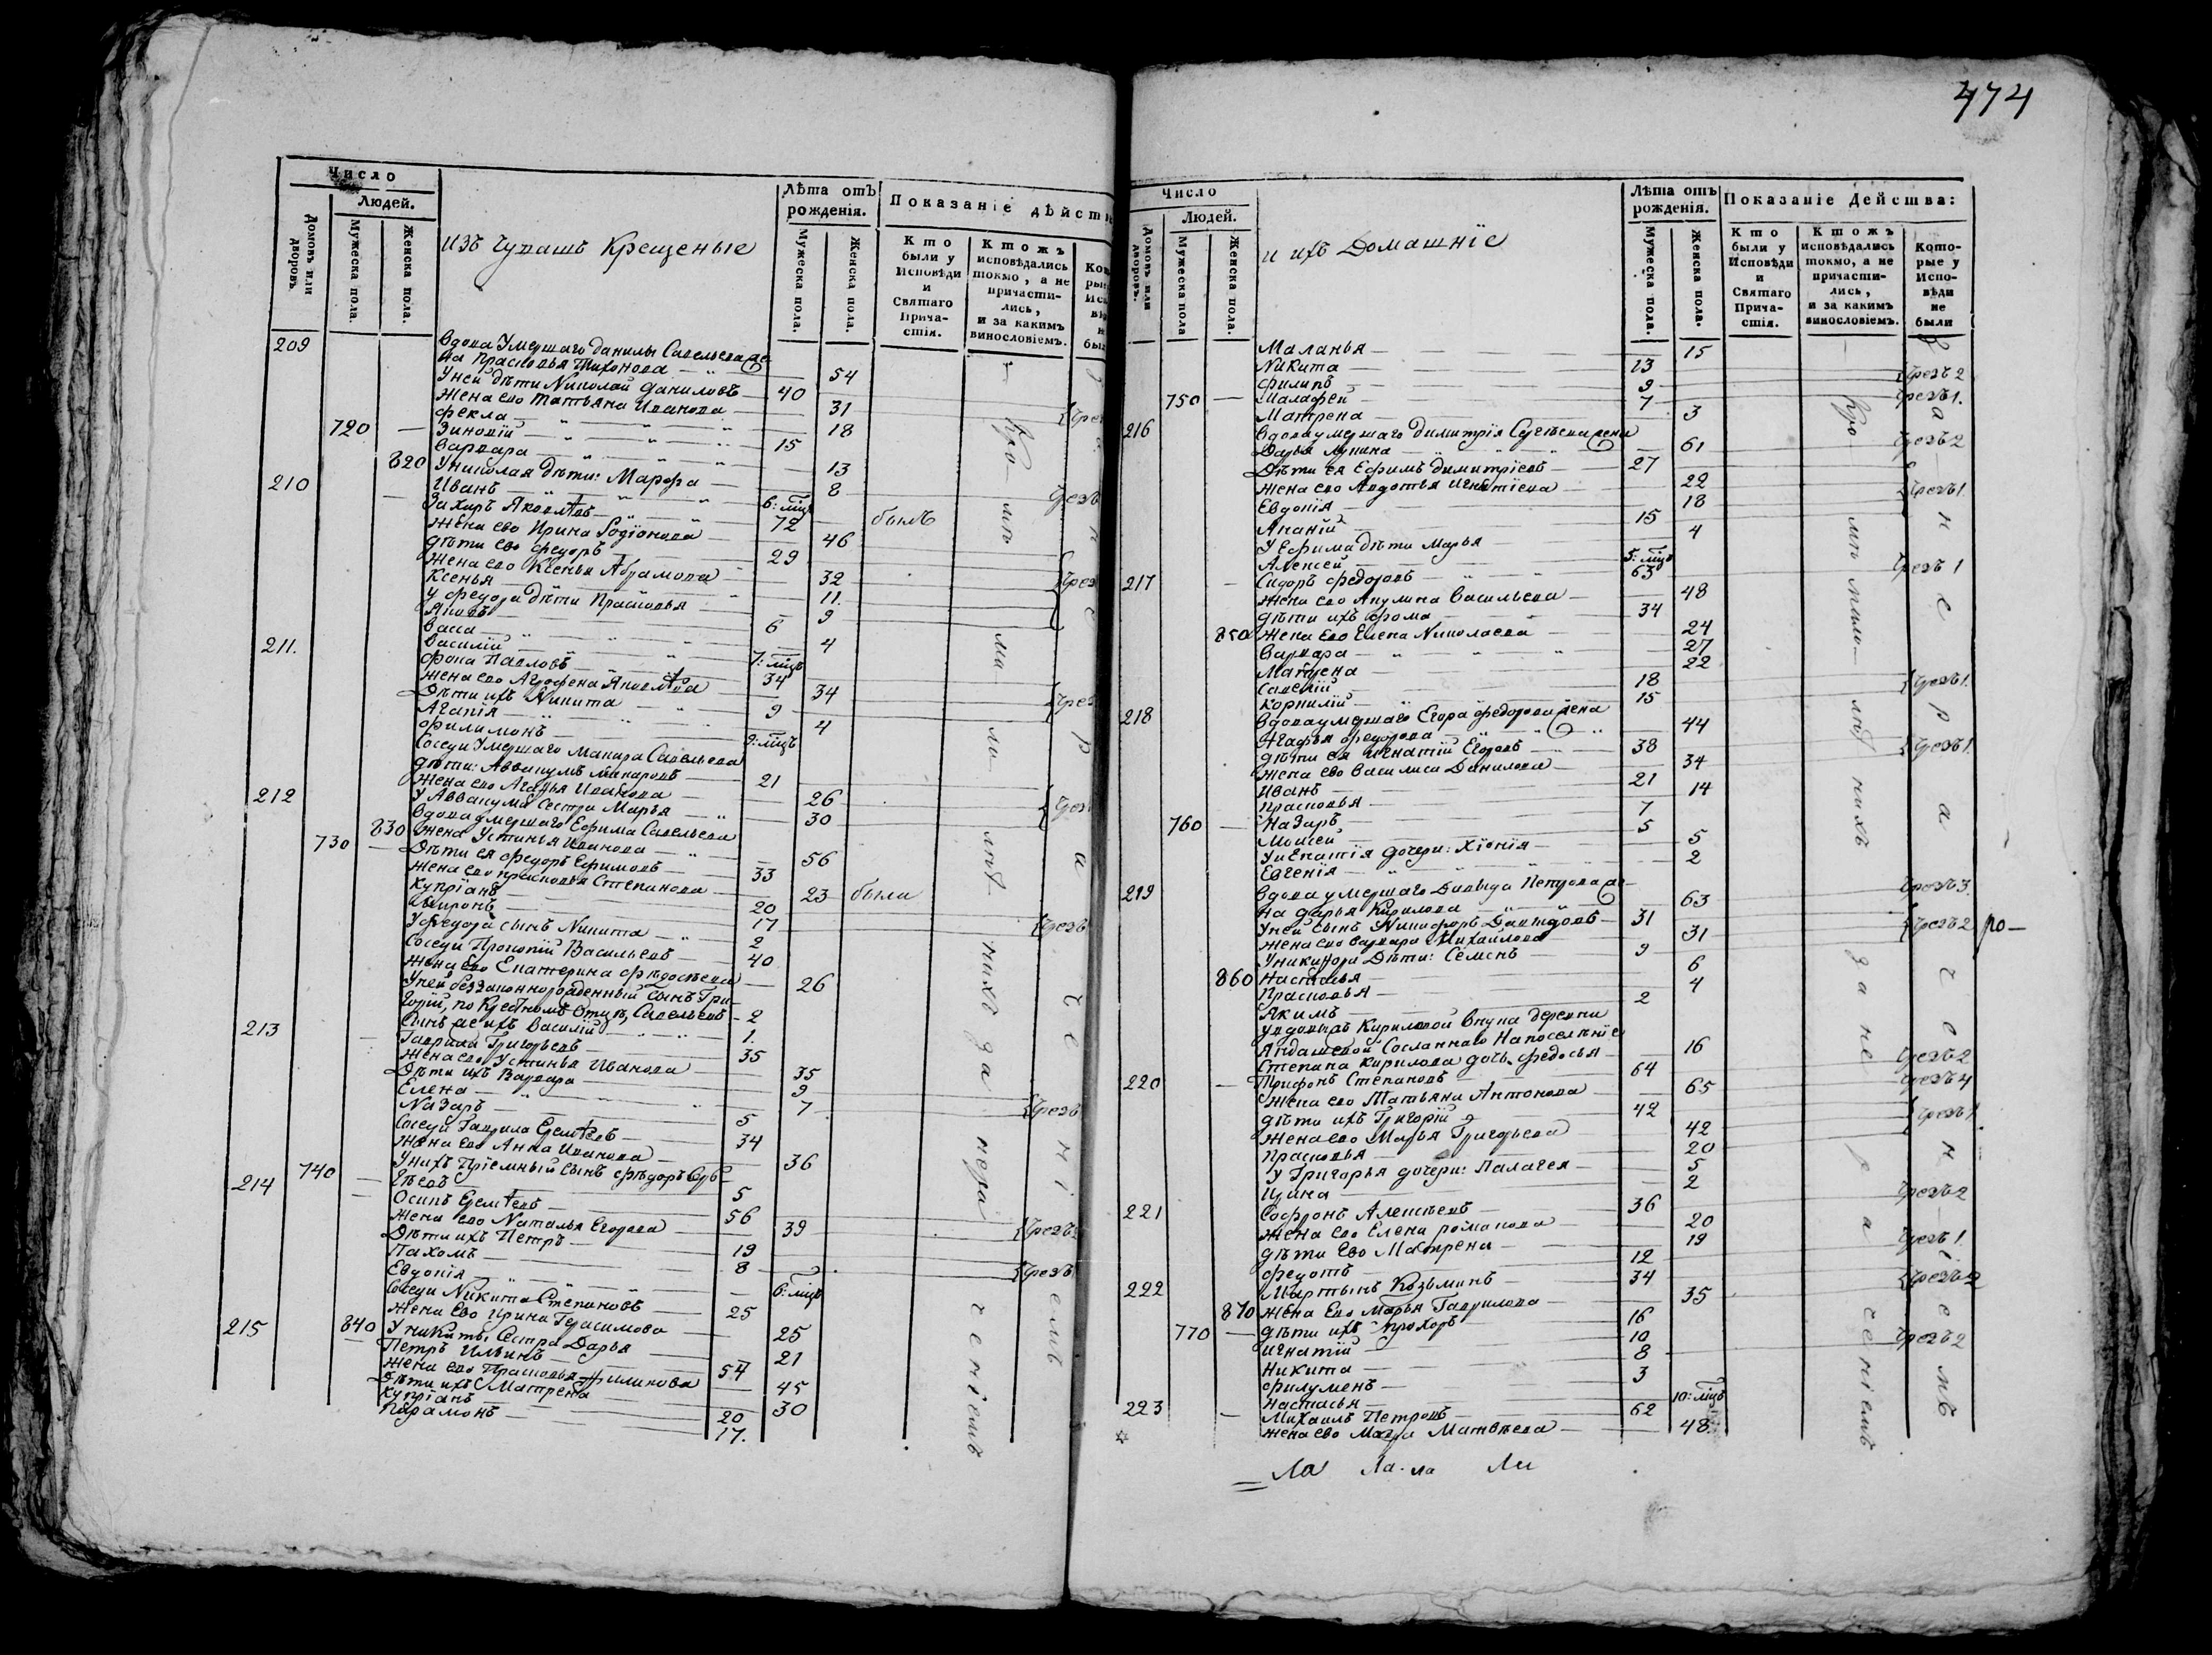 474
Число
Людей.
Домовъ или дворовъ.
Мужеска пола.
Женска пола.
изъ Чувашъ Крещеные
Лѣта отъ рожденія.
Мужеска пола.
Женска пола.
Показаніе дѣйств
Кто были у Исповѣди и Святаго Прича-стія.
Ктожъ исповѣдались токмо, а не причасти-лись, и за какимъ винословіемъ.
209 Вдова Умершаго Данилы Савельева же
на Прасковья Тихонова 54
У ней дѣти Николай Даниловъ 40
Жена ево Татьяна Иванова 31
Фекла 18
720 Зиновій 15
Варвара 13
820 У Николая дѣти: Марфа 8
Иванъ 6: мцъ
210 Захаръ Яковлевъ 72 былъ
Жена ево Ирина Родіонова 46
Дѣти ево Федоръ 29
Жена ево Ксенья Абрамова 32
Ксенья 11.
У Федора дѣти Прасковья 9
Яковъ 6
Васса 4
Василій 7: мцъ
211. Фока Павловъ 34
Жена ево Агрофена Яковлева 34
Дѣти ихъ Никита 9
Агапія 4
Филимонъ 9: мцъ
Соседи Умершаго Макара Савельева
дѣти: Аввакумъ Макаровъ 21
Жена ево Агафья Иванова 26
У Аввакума Сестра Марья 30
212 Вдова умершаго Ефима Савельева
830 Жена Устинья Иванова 56
730 Дѣти ея Федоръ Ефимовъ 33
Жена ево Прасковья Степанова 23 была
Купріанъ 20
Миронъ 17
У Федора сынъ Никита 2
Соседи Прокопій Васильевъ 40
Жена Ево Екатерина Ѳедосѣева 26
У ней беззаконнорожденный сынъ Гри-
горій, по Крестномъ Отцѣ, Савельевъ 2
Сынъ же ихъ Василій 1.
213 Гаврила Григорьевъ 35
Жена ево Устинья Иванова 35
Дѣти ихъ Варвара 9
Елена 7
Назаръ 5
Соседи Гаврила Еремѣевъ 34
Жена ево Анна Иванова 36
740 У нихъ Пріемный сынъ Ѳедоръ Сер-
гѣевъ 5
214 Осипъ Еремѣевъ 56
Жена ево Наталья Егорова 39
Дѣти ихъ Петръ 19
Пахомъ 8
Евдокія 6: мцъ
Соседи Никита Степановъ 25
Жена Ево Ирина Герасимова 25
840 У Никиты Сестра Дарья 21
215 Петръ Ильинъ 54
Жена ево Прасковья Филипова 45
Дѣти ихъ Матрена 30
Купріанъ 20
Парамонъ 17.
Число
Людей.
Домовъ или дворовъ.
Мужеска пола
Женска пола.
и ихъ Домашніе
Лѣта отъ рожденія.
Мужеска пола.
Женска пола.
Показаніе Действа:
Кто были у Исповѣди и Святаго Прича-стія.
Ктожъ исповѣдались токмо, а не причасти-лись, и за какимъ винословіемъ.
Кото-рые у Испо-вѣди не были
Маланья 15
Никита 13 чрезъ 2
Филипъ 9 чрезъ 1.
750 Малафей 7
Матрена 3
216 Вдова умершаго Димитрія Сергѣева жена
Дарья Лукина 61 чрезъ 2
Дѣти ея Ефимъ Димитріевъ 27
Жена ево Авдотья Игнатіева 22 чрезъ 1
Евдокія 18
Ананій 15
У Ефима дѣти Марья 4
Алексей 5: мцъ
217 Сидоръ Федоровъ 63 чрезъ 1
Жена ево Акулина Васильева 48
Дѣти ихъ Фома 34
850 Жена Ево Елена Николаева 24
Варвара 27
Матрена 22
Савелій 18 чрезъ 1.
Корнилій 15
218 Вдова умершаго Егора Федорова жена
Агафья Федорова 44
Дѣти ея Игнатій Егоровъ 38 чрезъ 1
Жена ево Василиса Данилова 34
Иванъ 21
Прасковья 14
760 Назаръ 7
Моисей 5
У Игнатія дочери: Хіонія 5
Евгенія 2
219 Вдова умершаго Давыда Петрова же-
на Дарья Кирилова 63 чрезъ 3.
У ней сынъ Никифоръ Давыдовъ 31
Жена ево Варвара Михайлова 31 чрезъ 2
У Никифора Дѣти: Семенъ 9
860 Настасья 6
Прасковья 4
Якимъ 2
У вдовы Кириловой внука деревни
Яндашевой Сосланнаго На поселѣніе
Степана Кирилова дочь Федосья 16 чрезъ 2
220 Трифонъ Степановъ 64 чрезъ 4
Жена ево Татьяна Антонова 65
Дѣти ихъ Григорій 42 чрезъ 1
Жена ево Марья Григорьева 42
Прасковья 20
У Григорья дочери: Палагея 5
Ирина 2
221 Софронъ Алексѣевъ 36 чрезъ 2
Жена ево Елена Романова 20
Дѣти Ево Матрена 19 чрезъ 1
Федотъ 12
222 Мартынъ Козьминъ 34 чрезъ 2
870 Жена Ево Марья Гаврилова 35
770 Дѣти ихъ Прохоръ 16
Игнатій 10 чрезъ 2
Никита 8
Филуменъ 3
Настасья 10: мцъ
223 Михаилъ Петровъ 62
Жена ево Мавра Матвѣева 48
ро-